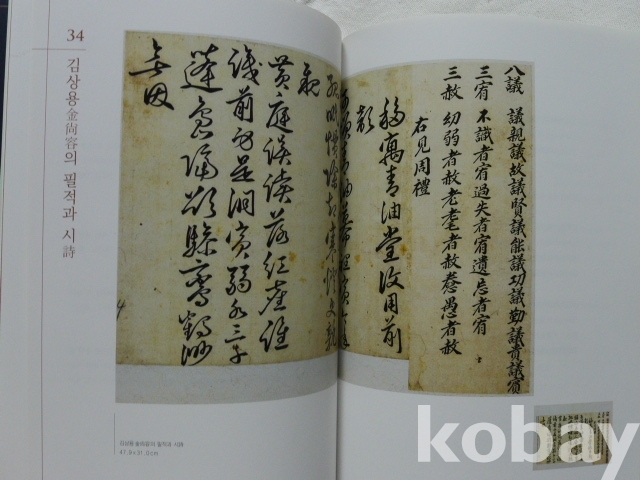 34
김상용金尙容의 필적과 시詩
八議 議親議故議賢議能議功議勤議貴議賓
三宥 不識者宥過失者宥遺忘者宥
三赦 幼弱者赦老耄者赦惷愚者赦
右見周禮
移寓青油堂汝用前
韻
親
黃庭讀落紅座誰
識前身是澗賓弱水三千
蓬島隔欲驂鸞鶴渺
無因
김상용金尙容의 필적과 시詩
47.8x31.0cm
kobay